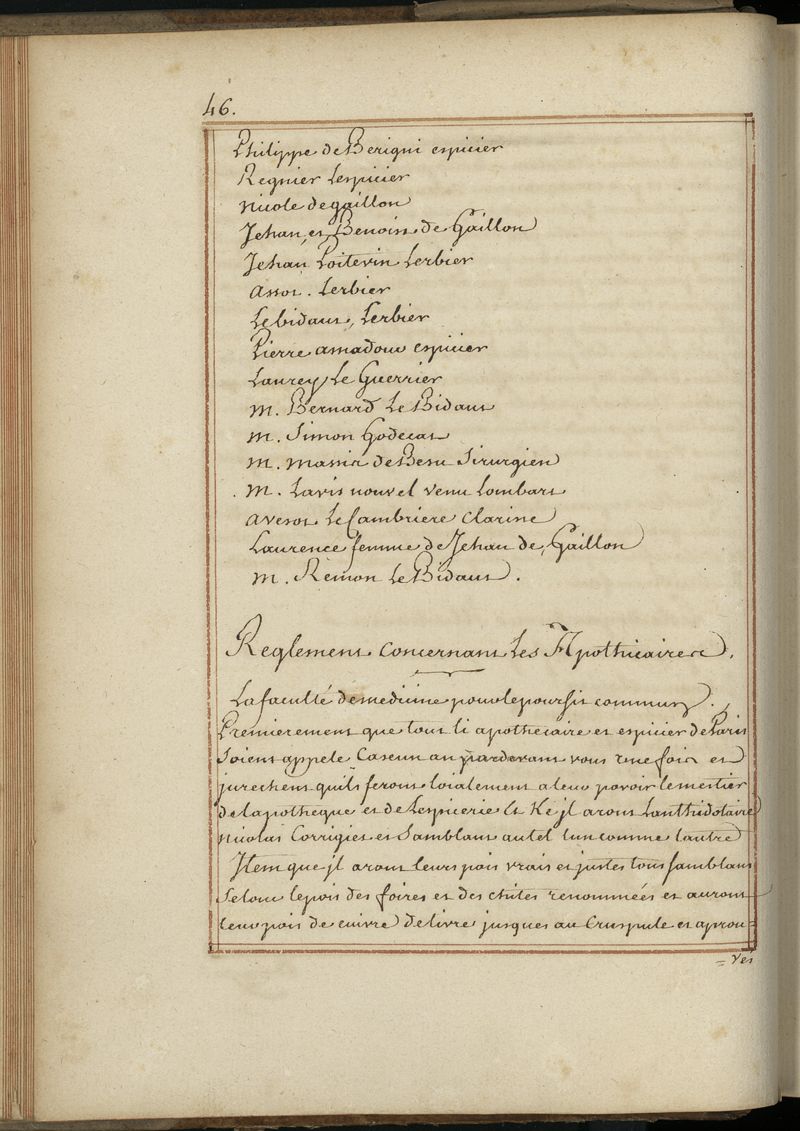 46.
Philippe de Berigni espicier
Regnier Lespicier
Nicole degaillon
Jehan, et Benoist de Gaillon
Jehan Poitevin Lerbier
assot. Lerbier
Lebidaut, Lerbier
Pierre amadour espicier
Laurey Le Guerrier
m. Bernard Le Bidaut
m. Simon Godecat
m. massic de Benu Sirurgien
m. Lavis nouvel venu Lombart
averot LeCambriere Clarine
Laurence femme de Jehan de, Gaillon
m. Remon Le Bidaut.
Reglement Concernant Les Apothicaires.
La faculté de medicine pour le pourfit commun.
Premierement que tout li apothecaire et espicier de Paris
Soient appele Cascun an pardevant vous une fois et
jurechent quils feront loialement a leur povoir le mestier
de lapotheque et de Lespicerie Et Ke jl aront Lanthidotaire
Nicolas Corrigiet et Samblant autel lun comme lautre
Jtem que jl aront leurs pois vrais et justes tous samblans
Selonc le pois des foires et des chités renommées et auront
leur pois de cuivre de livre jusques au Cruspule et aprou-
= ves